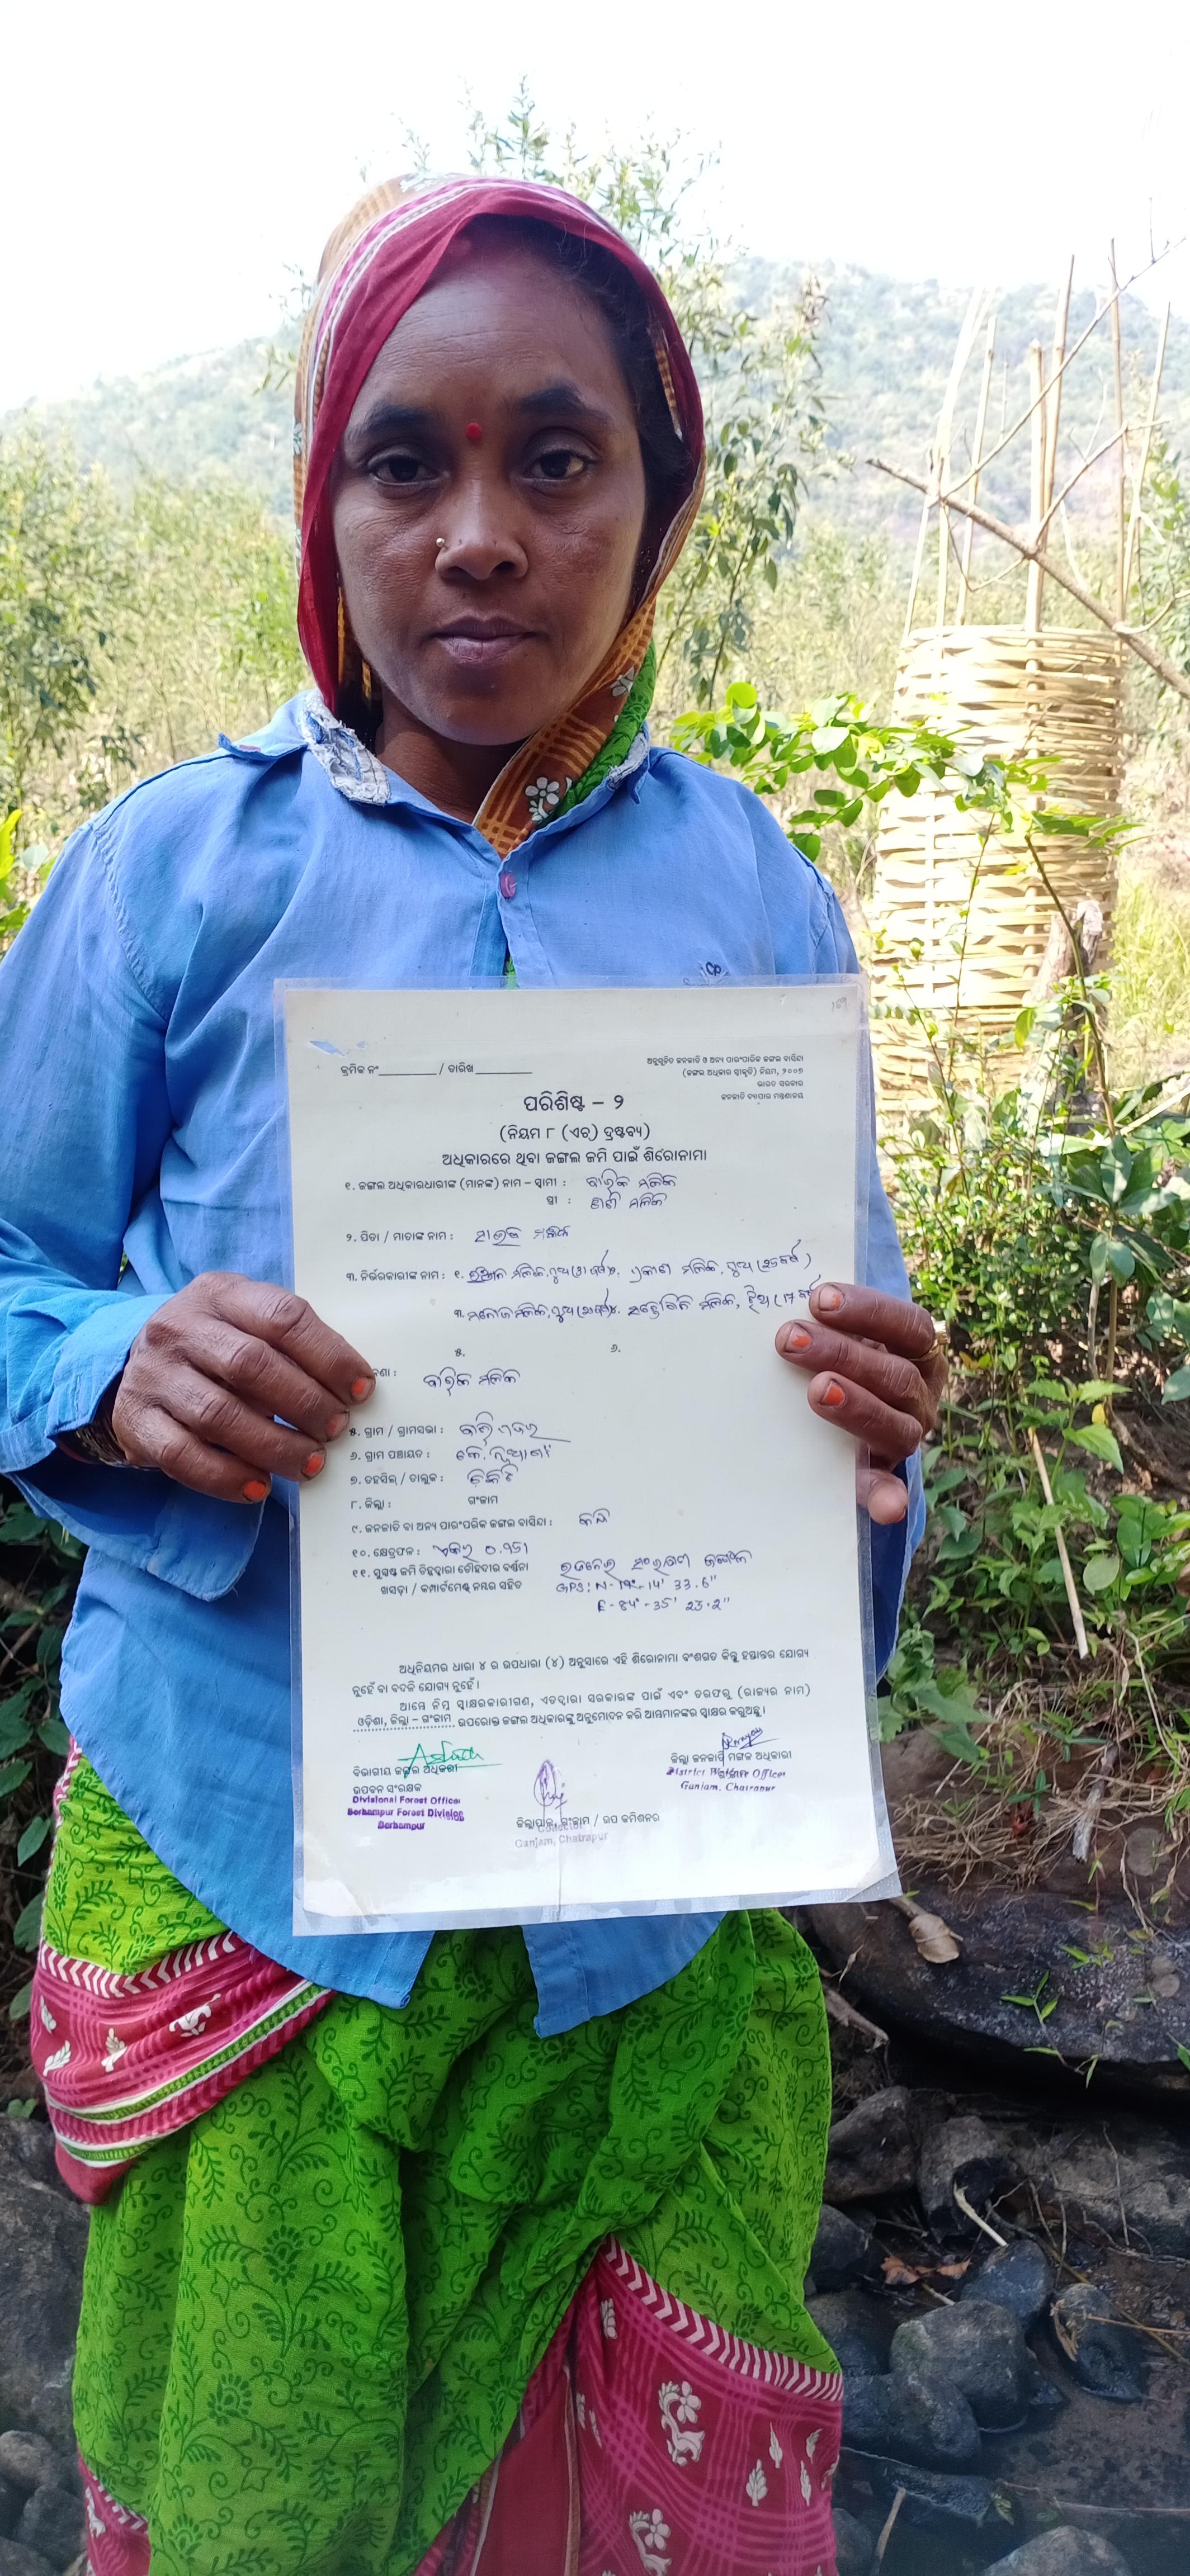 169
କ୍ରମିକ ନଂ__________ / ତାରିଖ __________
ଅନୁସୂଚିତ ଜନଜାତି ଓ ଅନ୍ୟ ପାରଂପାରିକ ଜଙ୍ଗଲ ବାସିନ୍ଦା
(ଜଙ୍ଗଲ ଅଧିକାର ସ୍ୱୀକୃତି) ନିୟମ, ୨୦୦୭
ଭାରତ ସରକାର
ଜନଜାତି ବ୍ୟାପାର ମନ୍ତ୍ରଣାଳୟ
ପରିଶିଷ୍ଟ – ୨
(ନିୟମ ୮ (ଏଚ୍) ଦ୍ରଷ୍ଟବ୍ୟ)
ଅଧିକାରରେ ଥିବା ଜଙ୍ଗଲ ଜମି ପାଇଁ ଶିରୋନାମା
୧. ଜଙ୍ଗଲ ଅଧିକାରଧାରୀଙ୍କ (ମାନଙ୍କ) ନାମ – ସ୍ୱାମୀ : ମଲିକ
ସ୍ତ୍ରୀ : ମଲିକ
୨. ପିତା / ମାତାଙ୍କ ନାମ : ମଲିକ
୩. ନିର୍ଭରକାରୀଙ୍କ ନାମ : ୧. ମଲିକ, ପୁଅ ମଲିକ, ପୁଅ
୩. ମନୋଜ ମଲିକ, ପୁଅ ମଲିକ, ଝିଅ (17 ବର୍ଷ
୫. ୬.
ମଲିକ
୫. ଗ୍ରାମ / ଗ୍ରାମସଭା :
୬. ଗ୍ରାମ ପଞ୍ଚାୟତ : କେ. ନୁଆଗାଁ
୭. ତହସିଲ୍ / ତାଲୁକ : ଚିକିଟି
୮. ଜିଲ୍ଲା : ଗଂଜାମ
୯. ଜନଜାତି ବା ଅନ୍ୟ ପାରଂପରିକ ଜଙ୍ଗଲ ବାସିନ୍ଦା :
୧୦. କ୍ଷେତ୍ରଫଳ : ଏକର 0.951
୧୧. ସୁସ୍ପଷ୍ଟ ଜମି ଚିହ୍ନଦ୍ୱାରା ଚୌହଦୀର ବର୍ଣ୍ଣନା ସଂରକ୍ଷଣ ଜଙ୍ଗଲ
ଖସଡ଼ା / କମ୍ପାର୍ଟମେଣ୍ଟ ନମ୍ବର ସହିତ GPS: N-19°-14' 33.6"
E-84°-35' 23.2"
ଅଧିନିୟମର ଧାରା ୪ ର ଉପଧାରା (୪) ଅନୁସାରେ ଏହି ଶିରୋନାମା ବଂଶଗତ କିନ୍ତୁ ହସ୍ତାନ୍ତର ଯୋଗ୍ୟ
ନୁହେଁ ବା ବଦଳି ଯୋଗ୍ୟ ନୁହେଁ ।
ଆମ୍ଭେ ନିମ୍ନ ସ୍ୱାକ୍ଷରକାରୀଗଣ, ଏତଦ୍ୱାରା ସରକାରଙ୍କ ପାଇଁ ଏବଂ ତରଫରୁ (ରାଜ୍ୟର ନାମ)
ଓଡ଼ିଶା, ଜିଲ୍ଲା – ଗଂଜାମ ଉପରୋକ୍ତ ଜଙ୍ଗଲ ଅଧିକାରଙ୍କୁ ଅନୁମୋଦନ କରି ଆମ୍ଭମାନଙ୍କର ସ୍ୱାକ୍ଷର କରୁଅଛୁ ।
ବିଭାଗୀୟ ଜଙ୍ଗଲ ଅଧିକାରୀ
ଉପବନ ସଂରକ୍ଷକ
Divisional Forest Officer
Berhampur Forest Division
Berhampur
ଜିଲ୍ଲାପାଳ, ଗଂଜାମ / ଉପ କମିଶନର
Collector
Ganjam, Chatrapur
ଜିଲ୍ଲା ଜନଜାତି ମଙ୍ଗଳ ଅଧିକାରୀ
ଗଂଜାମ
District Welfare Officer
Ganjam, Chatrapur